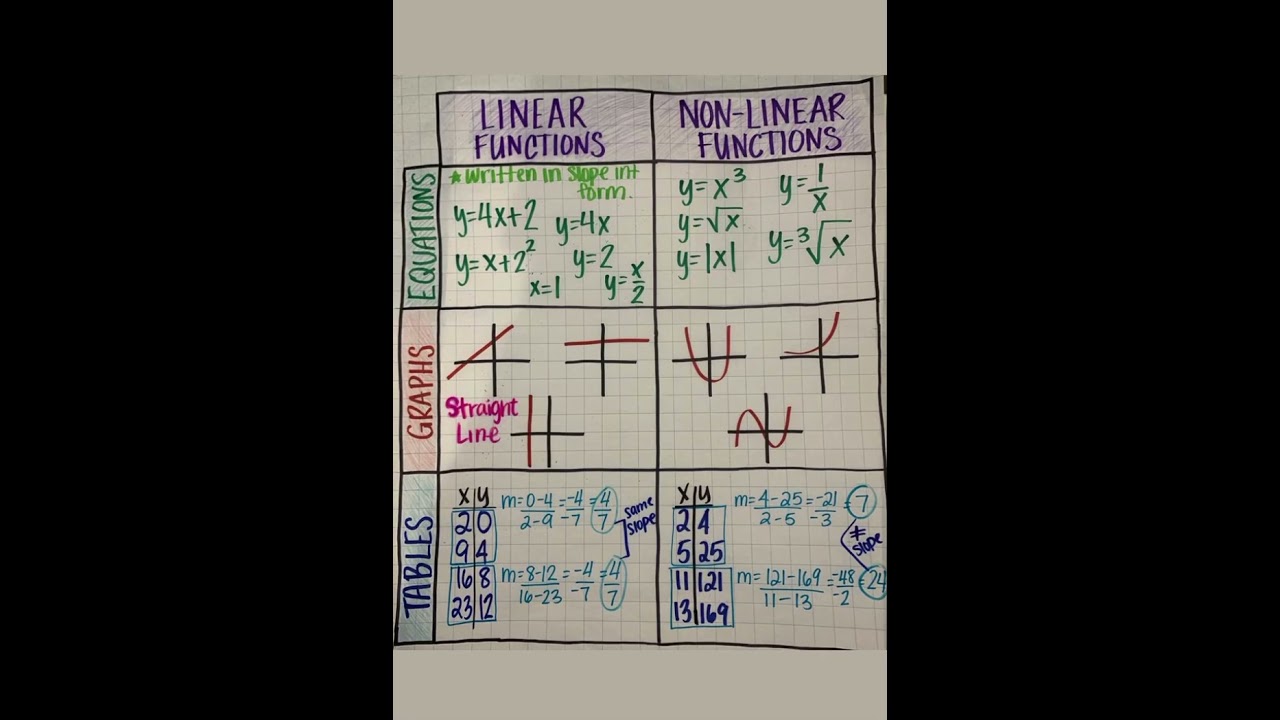 LINEAR FUNCTIONS
NON-LINEAR FUNCTIONS
EQUATIONS
★Written in slope int form.
y=4x+2 y=4x
y=x+2² y=2
x=1 y=x/2
y=x³ y=1/x
y=√x
y=³√x
y=|x|
GRAPHS
Straight
Line
TABLES
x|y
2|0
9|4
16|8
23|12
m=0-4/2-9=-4/-7=4/7
same
slope
m=8-12/16-23=-4/-7=4/7
x|y
2|4
5|25
11|121
13|169
m=4-25/2-5=-21/-3=7
≠
slope
m=121-169/11-13=-48/-2=24